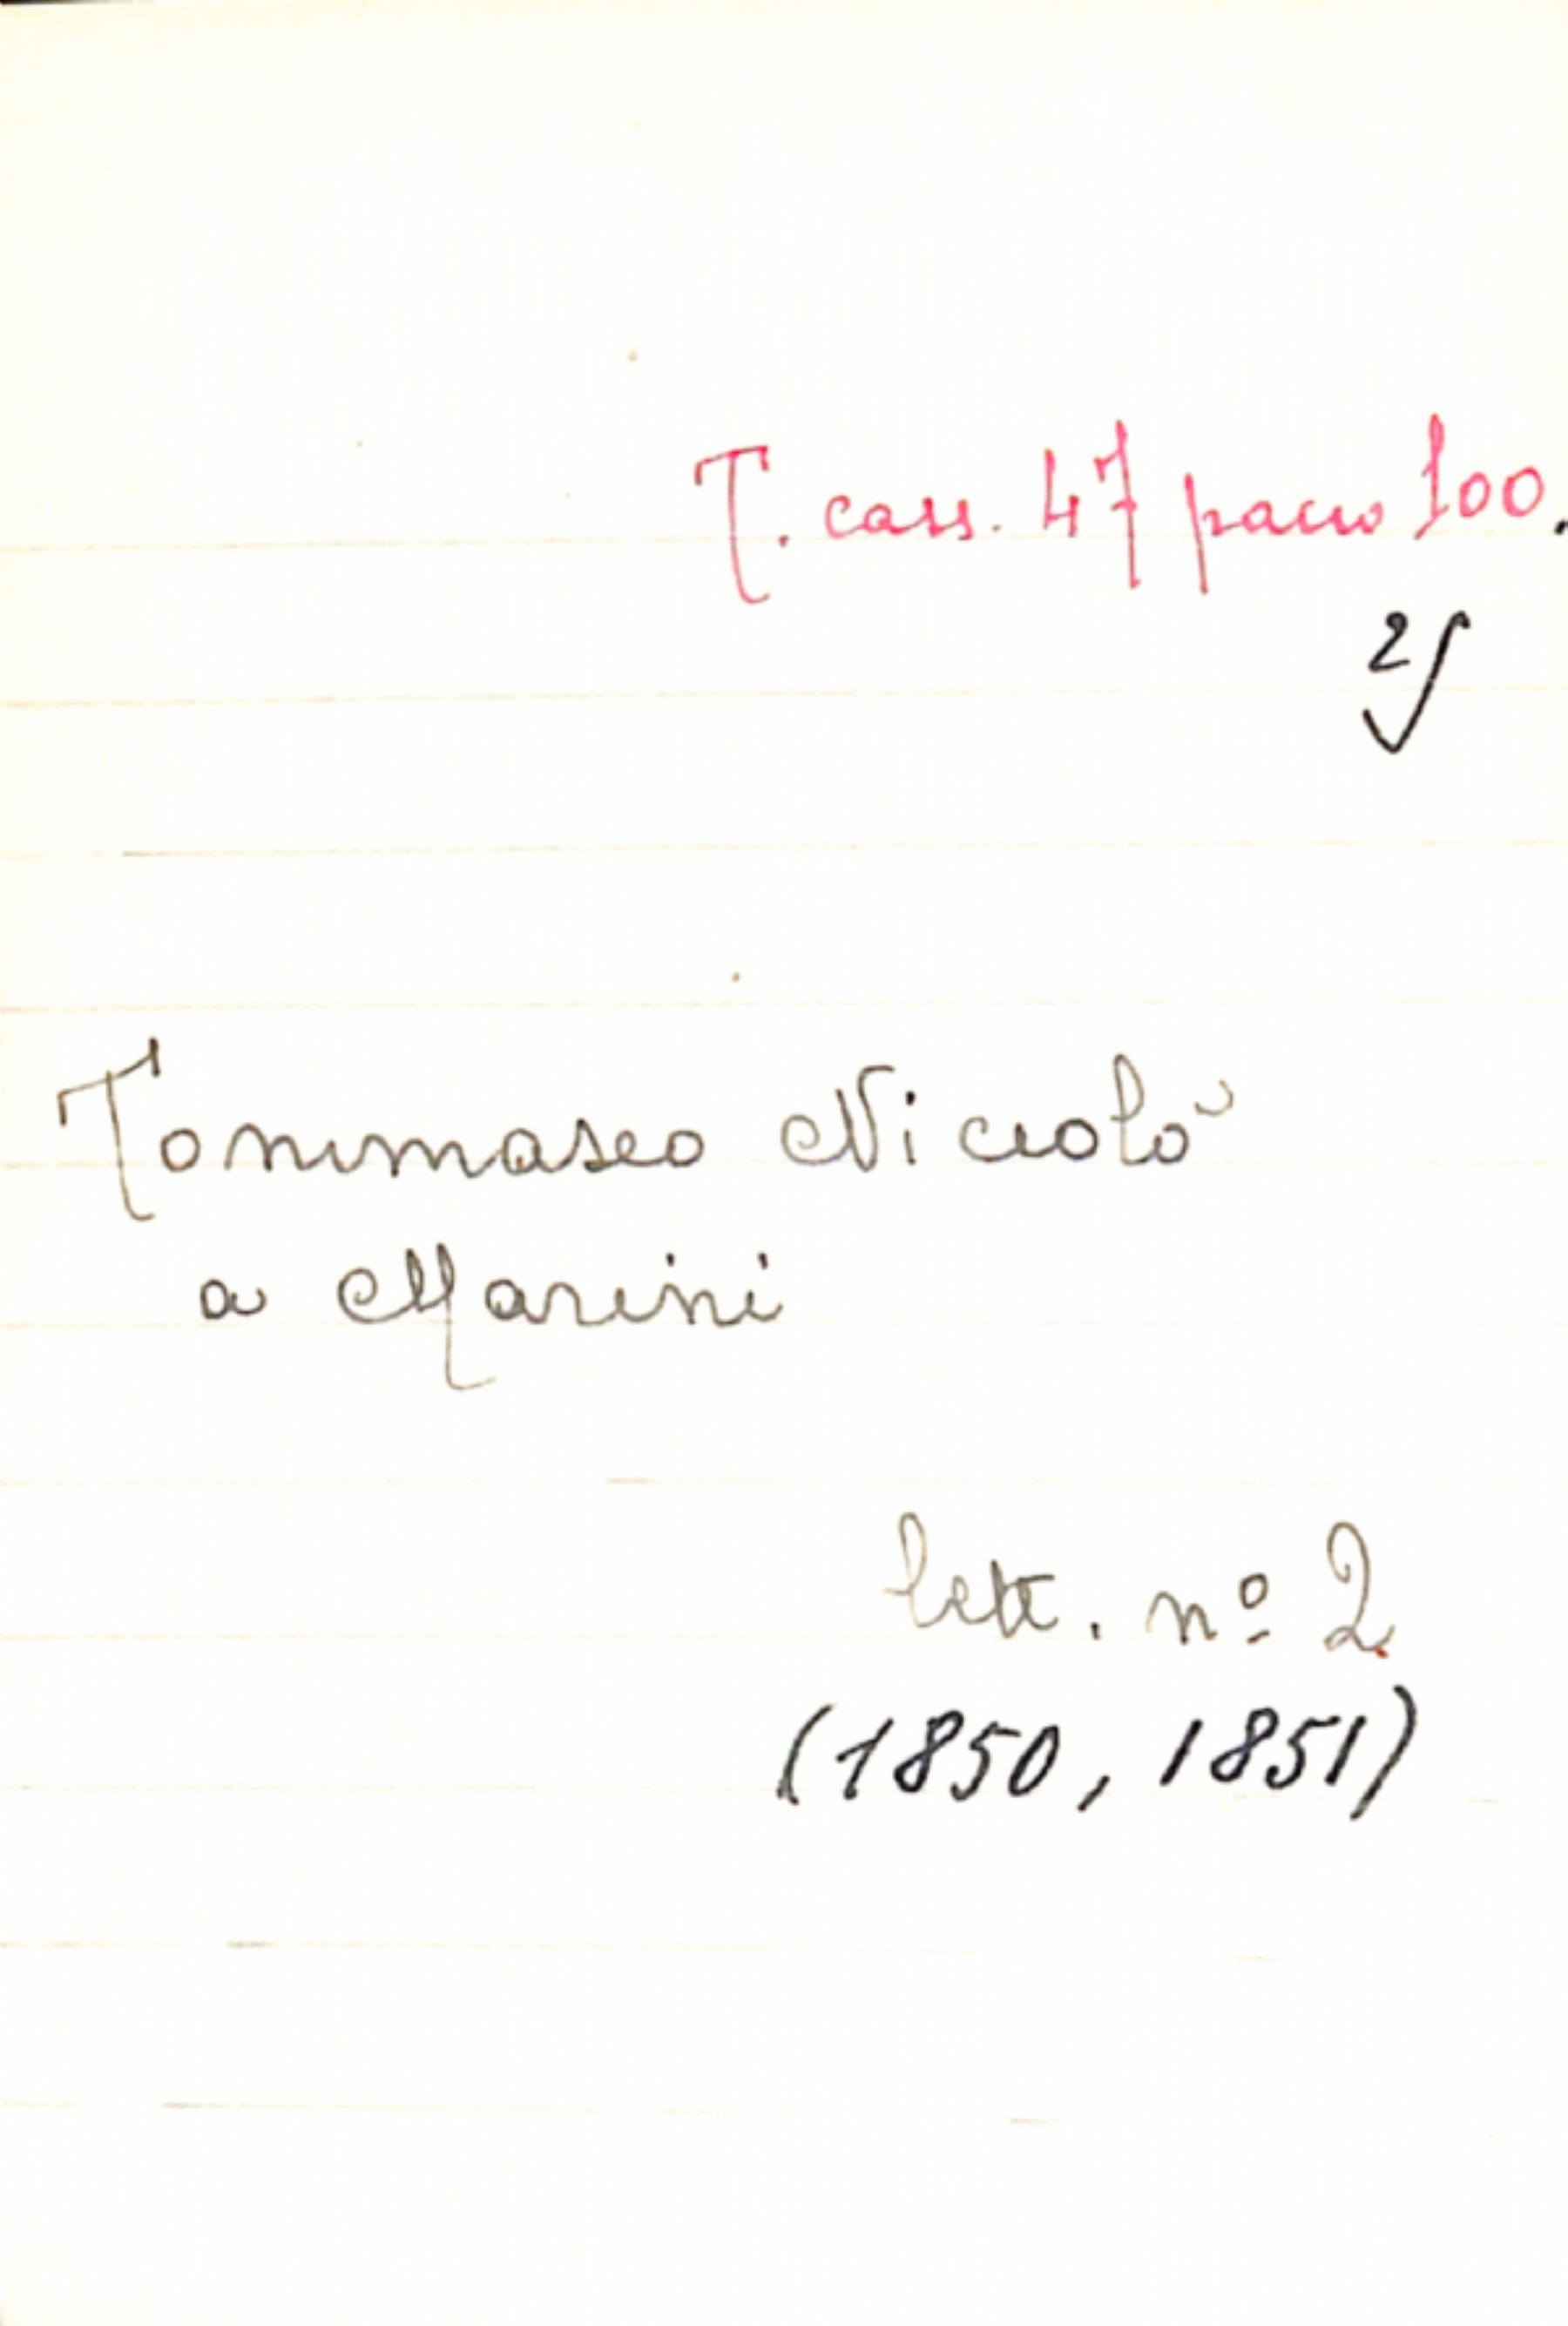 T. cass. 47 pacco 100.
2
Tommaseo Niccolò
a Marini
lett. nº 2
(1850, 1851)